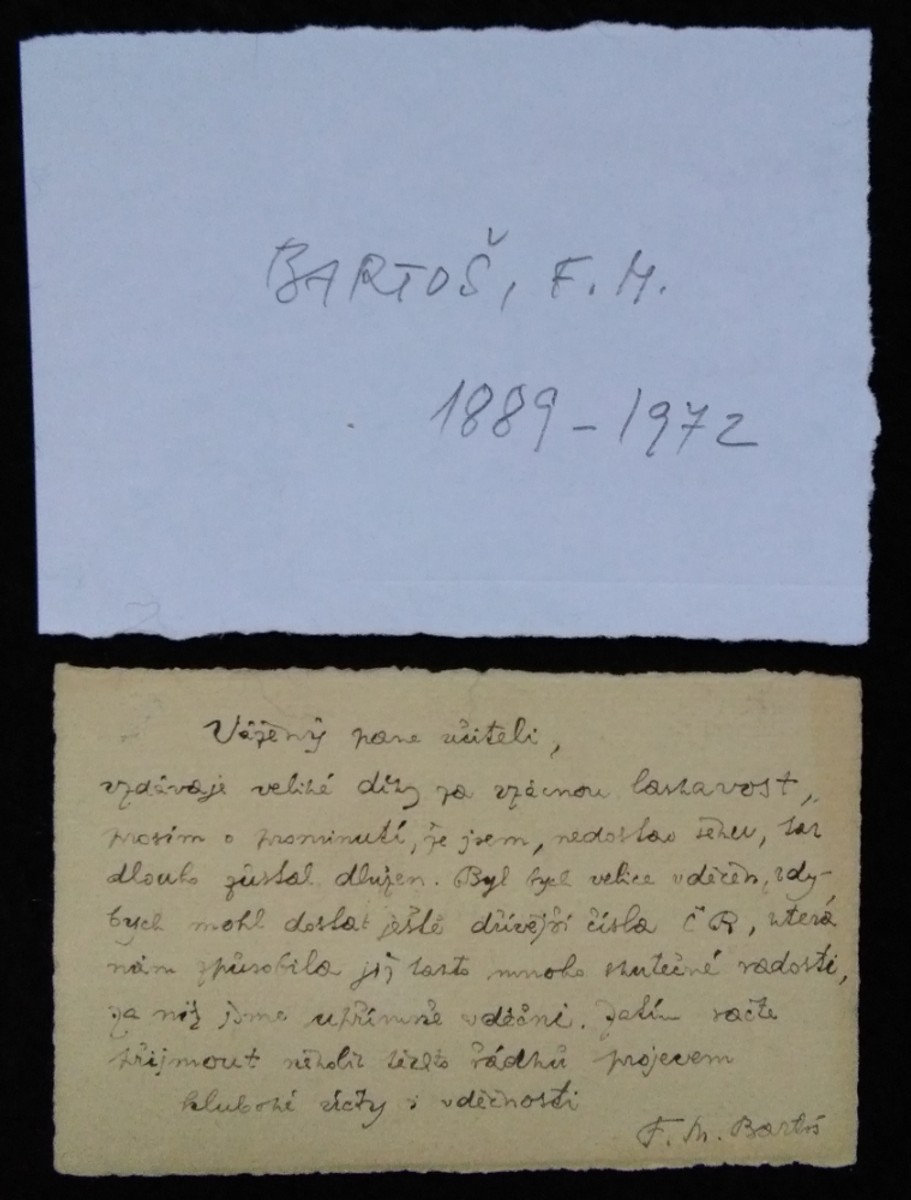 BARTOŠ, F. M.
1889 – 1972
Vážený pane učiteli,
vzdávaje veliké díky za vzácnou laskavost,
prosím o prominutí, že jsem, nedostav se, tak
dlouho zůstal dlužen. Byl bych velice vděčen, kdy-
bych mohl dostat ještě dřívější čísla ČR, která
nám způsobila již často mnoho skutečné radosti,
za niž jsme upřímně vděčni. Zatím račte
přijmout několik těchto řádků projevem
hluboké úcty i vděčnosti
F. M. Bartoš